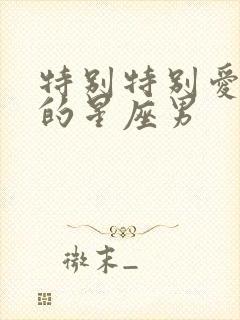 特别特别爱
的星座男
微末_